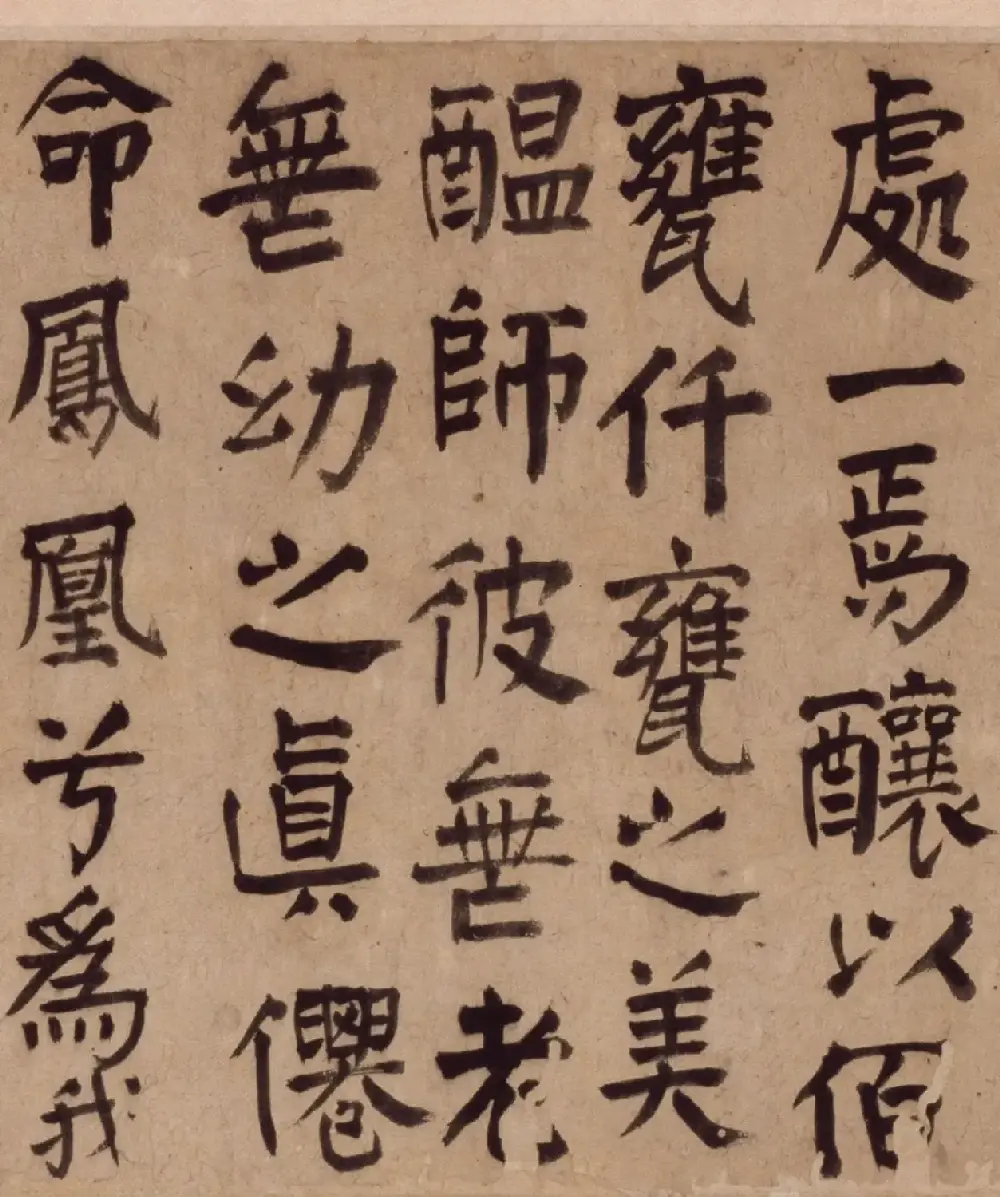 處一焉釀以佰
甕仟甕之美
醖師彼無老
無幼之眞僊
命鳳凰兮爲我